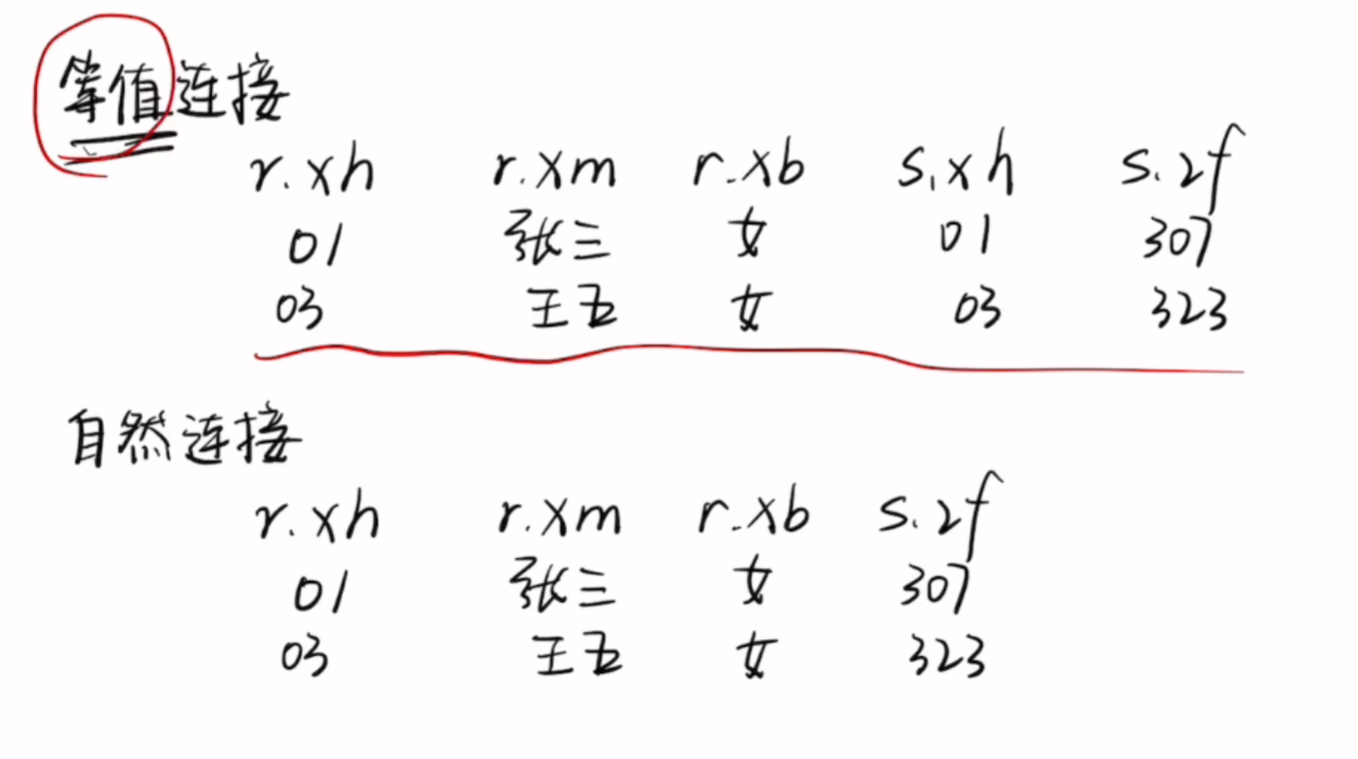 等值连接
r.xh r.xm r.xb s.xh s.zf
01 张三 女 01 307
03 王五 女 03 323
自然连接
r.xh r.xm r.xb s.zf
01 张三 女 307
03 王五 女 323